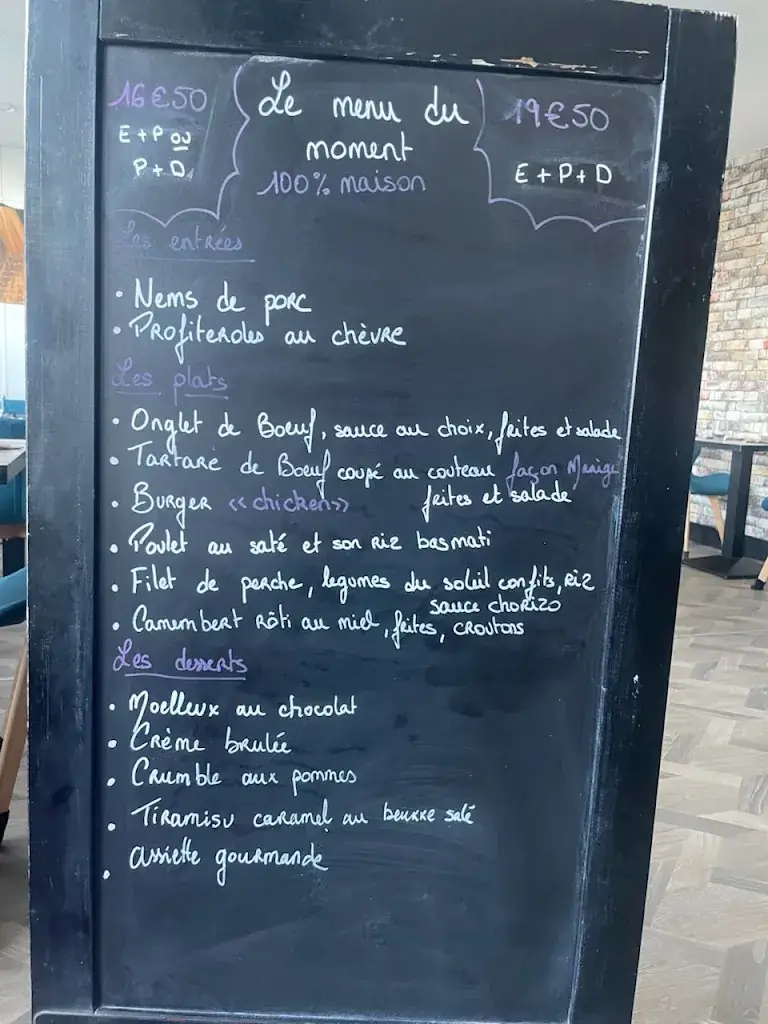 16€50
E + P ou
P + D
Le menu du
moment
100% maison
19€50
E + P + D
Les entrées
• Nems de porc
• Profiteroles au chèvre
Les plats
• Onglet de Boeuf, sauce au choix, frites et salade
• Tartare de Boeuf coupé au couteau façon
frites et salade
• Burger «chicken»
• Poulet au saté et son riz basmati
• Filet de perche, légumes du soleil confits, riz
sauce chorizo
• Camembert rôti au miel, frites, croutons
Les desserts
• Moelleux au chocolat
• Crème brulée
• Crumble aux pommes
• Tiramisu caramel au beurre salé
• assiette gourmande